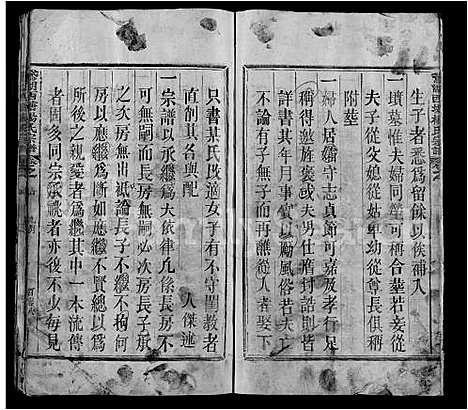 生子者悉爲留餘以俟補入
一墳墓惟夫婦同塋可稱合葬若妾從
夫子從父娘從姑卑幼從尊長俱稱
附葬
一婦人居孀守志貞節可嘉及孝行足
稱得邀旌褒或夫男仕膺封誥則皆
詳書其年月事實以勵風俗若夫亡
不論有子無子而再醮從人者娶下
只書某氏改適女子有不守閨教者
直削其名與配
一宗譜以承繼爲大依律凡係長房不
可無嗣而長房無嗣必次房長子承
之次房無出概論長子不繼不拘何
房以應繼爲斷如應繼不賢總以爲
所後之親愛者爲繼其中一本流傳
者固多同宗承嗣者亦復不少每見